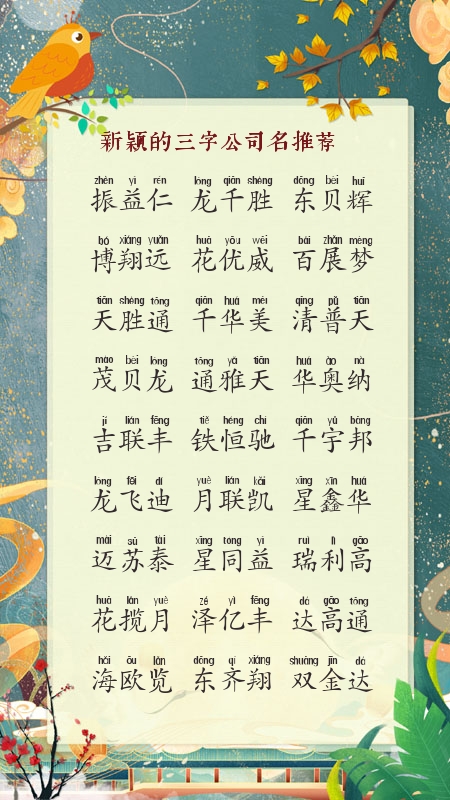 新颖的三字公司名推荐
zhèn yì rén lóng qiān shèng dōng bèi huī
振益仁 龙千胜 东贝辉
bó xiáng yuǎn huā yōu wēi bǎi zhǎn mèng
博翔远 花优威 百展梦
tiān shèng tōng qiān huá měi qīng pǔ tiān
天胜通 千华美 清普天
mào bèi lóng tōng yǎ tiān huá ào nà
茂贝龙 通雅天 华奥纳
jí lián fēng tiě héng chí qiān yǔ bāng
吉联丰 铁恒驰 千宇邦
lóng fēi dí yuè lián kǎi xīng xīn huá
龙飞迪 月联凯 星鑫华
mài sū tài xīng tóng yì ruì lì gāo
迈苏泰 星同益 瑞利高
huā lǎn yuè zé yì fēng dá gāo tōng
花揽月 泽亿丰 达高通
hǎi ōu lǎn dōng qí xiáng shuāng jīn dá
海欧览 东齐翔 双金达